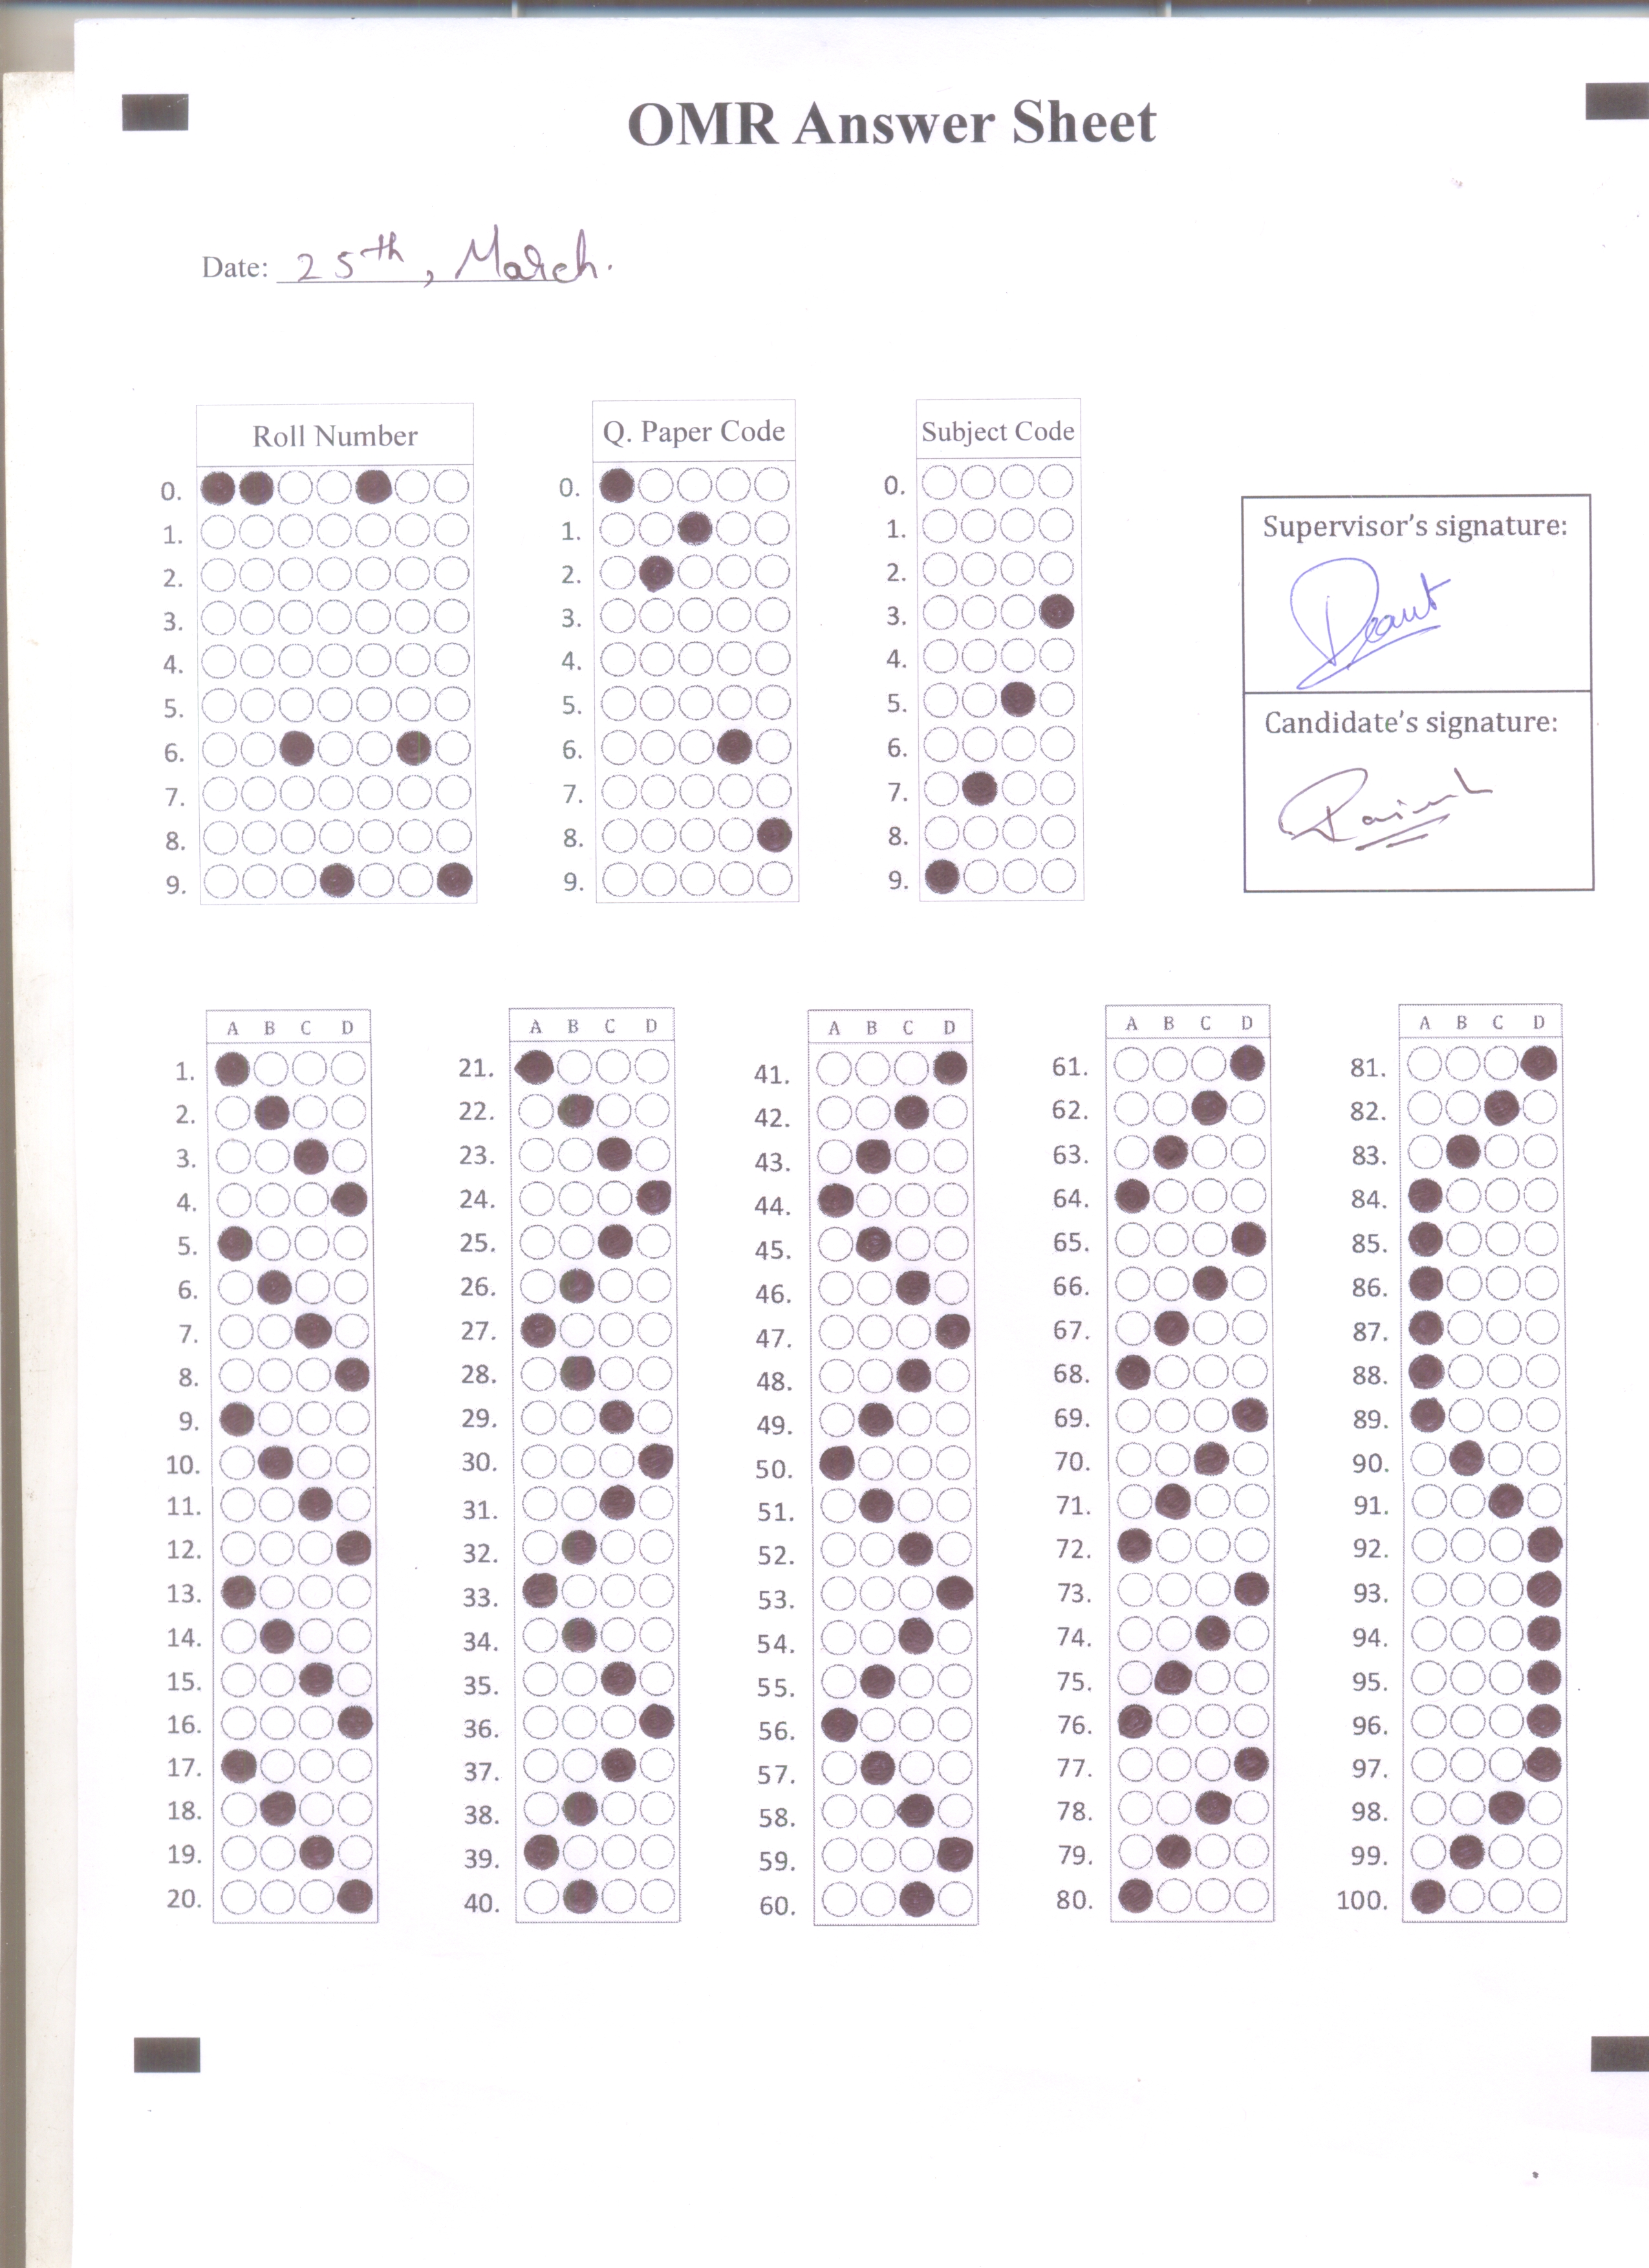 OMR Answer Sheet
Date: 25th, March.
Roll Number
0.
1.
2.
3.
4.
5.
6.
7.
8.
9.
Q. Paper Code
0.
1.
2.
3.
4.
5.
6.
7.
8.
9.
Subject Code
0.
1.
2.
3.
4.
5.
6.
7.
8.
9.
Supervisor's signature:
Candidate's signature:
A B C D
1.
2.
3.
4.
5.
6.
7.
8.
9.
10.
11.
12.
13.
14.
15.
16.
17.
18.
19.
20.
A B C D
21.
22.
23.
24.
25.
26.
27.
28.
29.
30.
31.
32.
33.
34.
35.
36.
37.
38.
39.
40.
A B C D
41.
42.
43.
44.
45.
46.
47.
48.
49.
50.
51.
52.
53.
54.
55.
56.
57.
58.
59.
60.
A B C D
61.
62.
63.
64.
65.
66.
67.
68.
69.
70.
71.
72.
73.
74.
75.
76.
77.
78.
79.
80.
A B C D
81.
82.
83.
84.
85.
86.
87.
88.
89.
90.
91.
92.
93.
94.
95.
96.
97.
98.
99.
100.